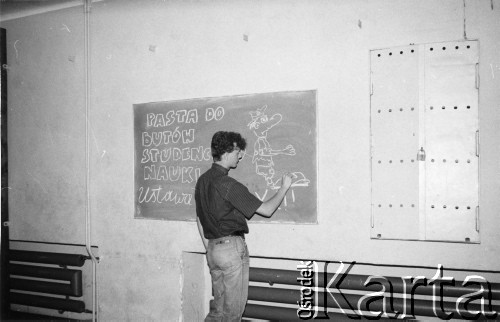 PASTA DO
BUTÓW
STUDENC
NAUKI
Ustawa
Ośrodek
Karta